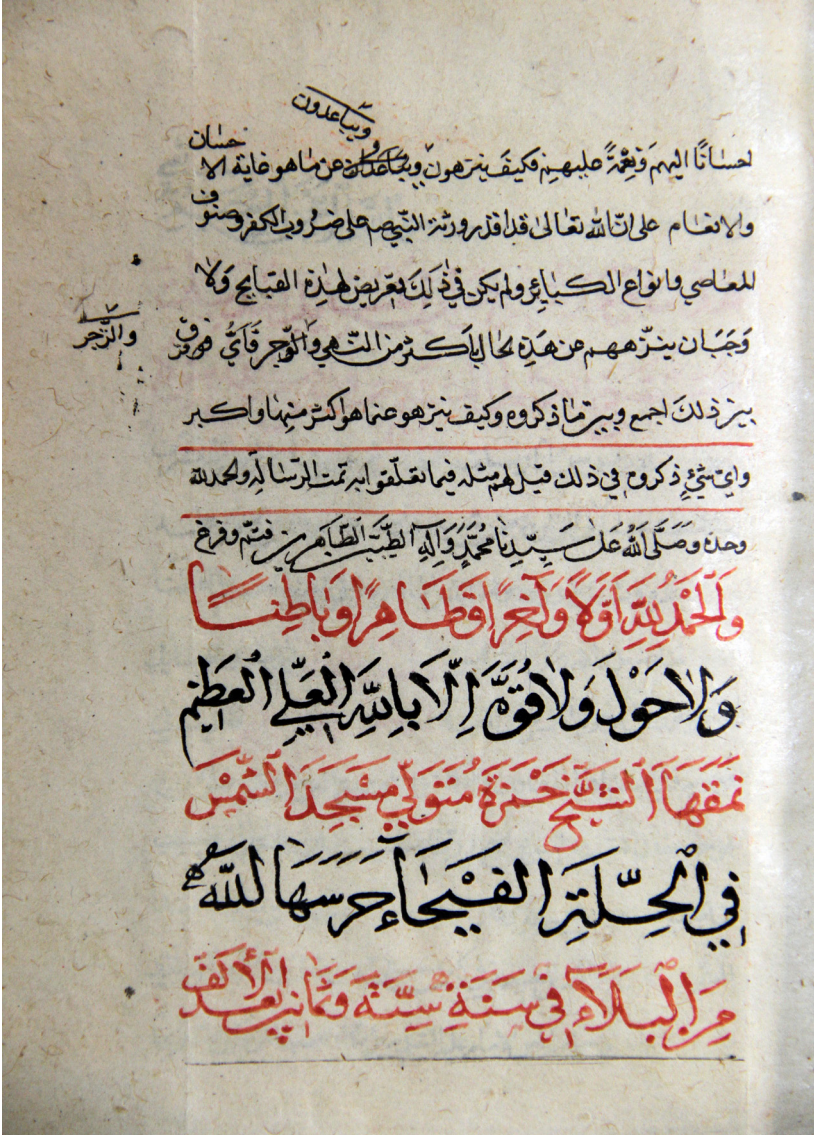 ويباعدون
احسانًا اليهم ونِعْمةً عليهم فكيف ينزهون ويباعدون عن ما هو غاية الاحسان
والانعام على ان الله تعالى قد اقدر ورثة النبي صم على ضروب الكفر وصنوف
المعاصي وانواع الكبائر ولم يكن في ذلِكَ تعريض لهذِهِ القبايح وَلا
وَجَبَ ان ينزّههم عن هَذِهِ الحال باكثر من النّهي والزجر فَايُّ فرق
والزَّجر
بين ذلكَ اجمع وبين ما ذكروه وكيف ينزهو عنما هو اكثر منها واكبر
واي شيْءٍ ذكروه في ذلك قيل لهم مثله فيما تعلّقوا به تمت الرّسالة والحمد لله
وحده وَصَلَّى اللّٰهُ عَلىٰ سَيِّدِنَا مُحَمَّدٍ وَآلِهِ الطَّيِّبين الطّاهرين فتمّ وفرغ
وَالْحَمْدُ لِلّٰهِ اَوَّلاً وَآخِرًا وَظَاهِرًا وَبَاطِنًا
وَلاٰ حَوْلَ وَلاٰ قُوَّةَ اِلَّا بِاللّٰهِ الْعَلِّيِ الْعَظِيْمِ
نَمَّقَهَا الشَّيْخ حَمْزَة مُتَوَلِّي مَسْجِدَ الشَّمْسِ
فِي الْحِلَّةِ الْفَيْحَاءِ حَرَسَهَا اللّٰهُ
مِنَ الْبَلَاءِ فِي سَنَةِ سِتَّةَ وَثَمَانين بَعْدَ الْأَلْف